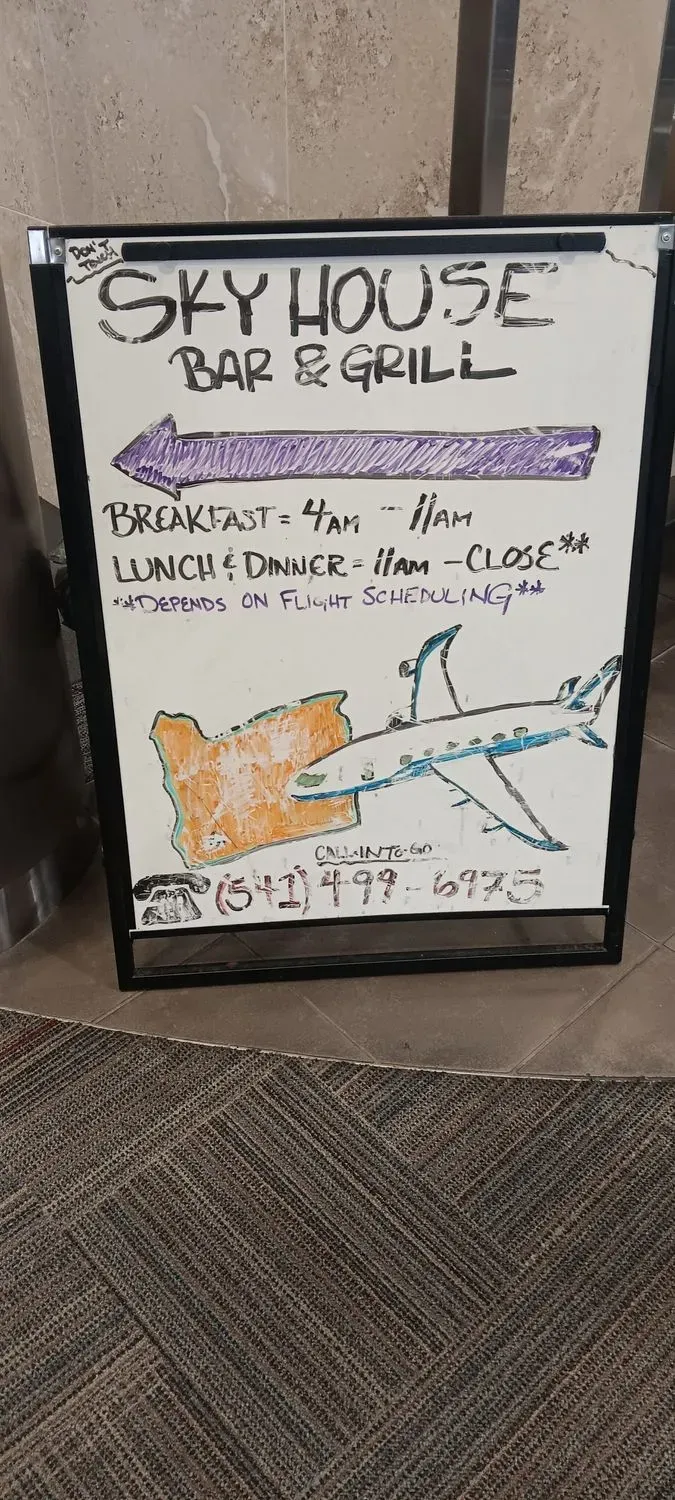 DON'T
TOUCH
SKY HOUSE
BAR & GRILL
BREAKFAST = 4AM - 11AM
LUNCH & DINNER = 11AM - CLOSE**
**DEPENDS ON FLIGHT SCHEDULING**
CALL-IN TO-GO
(541) 499-6975